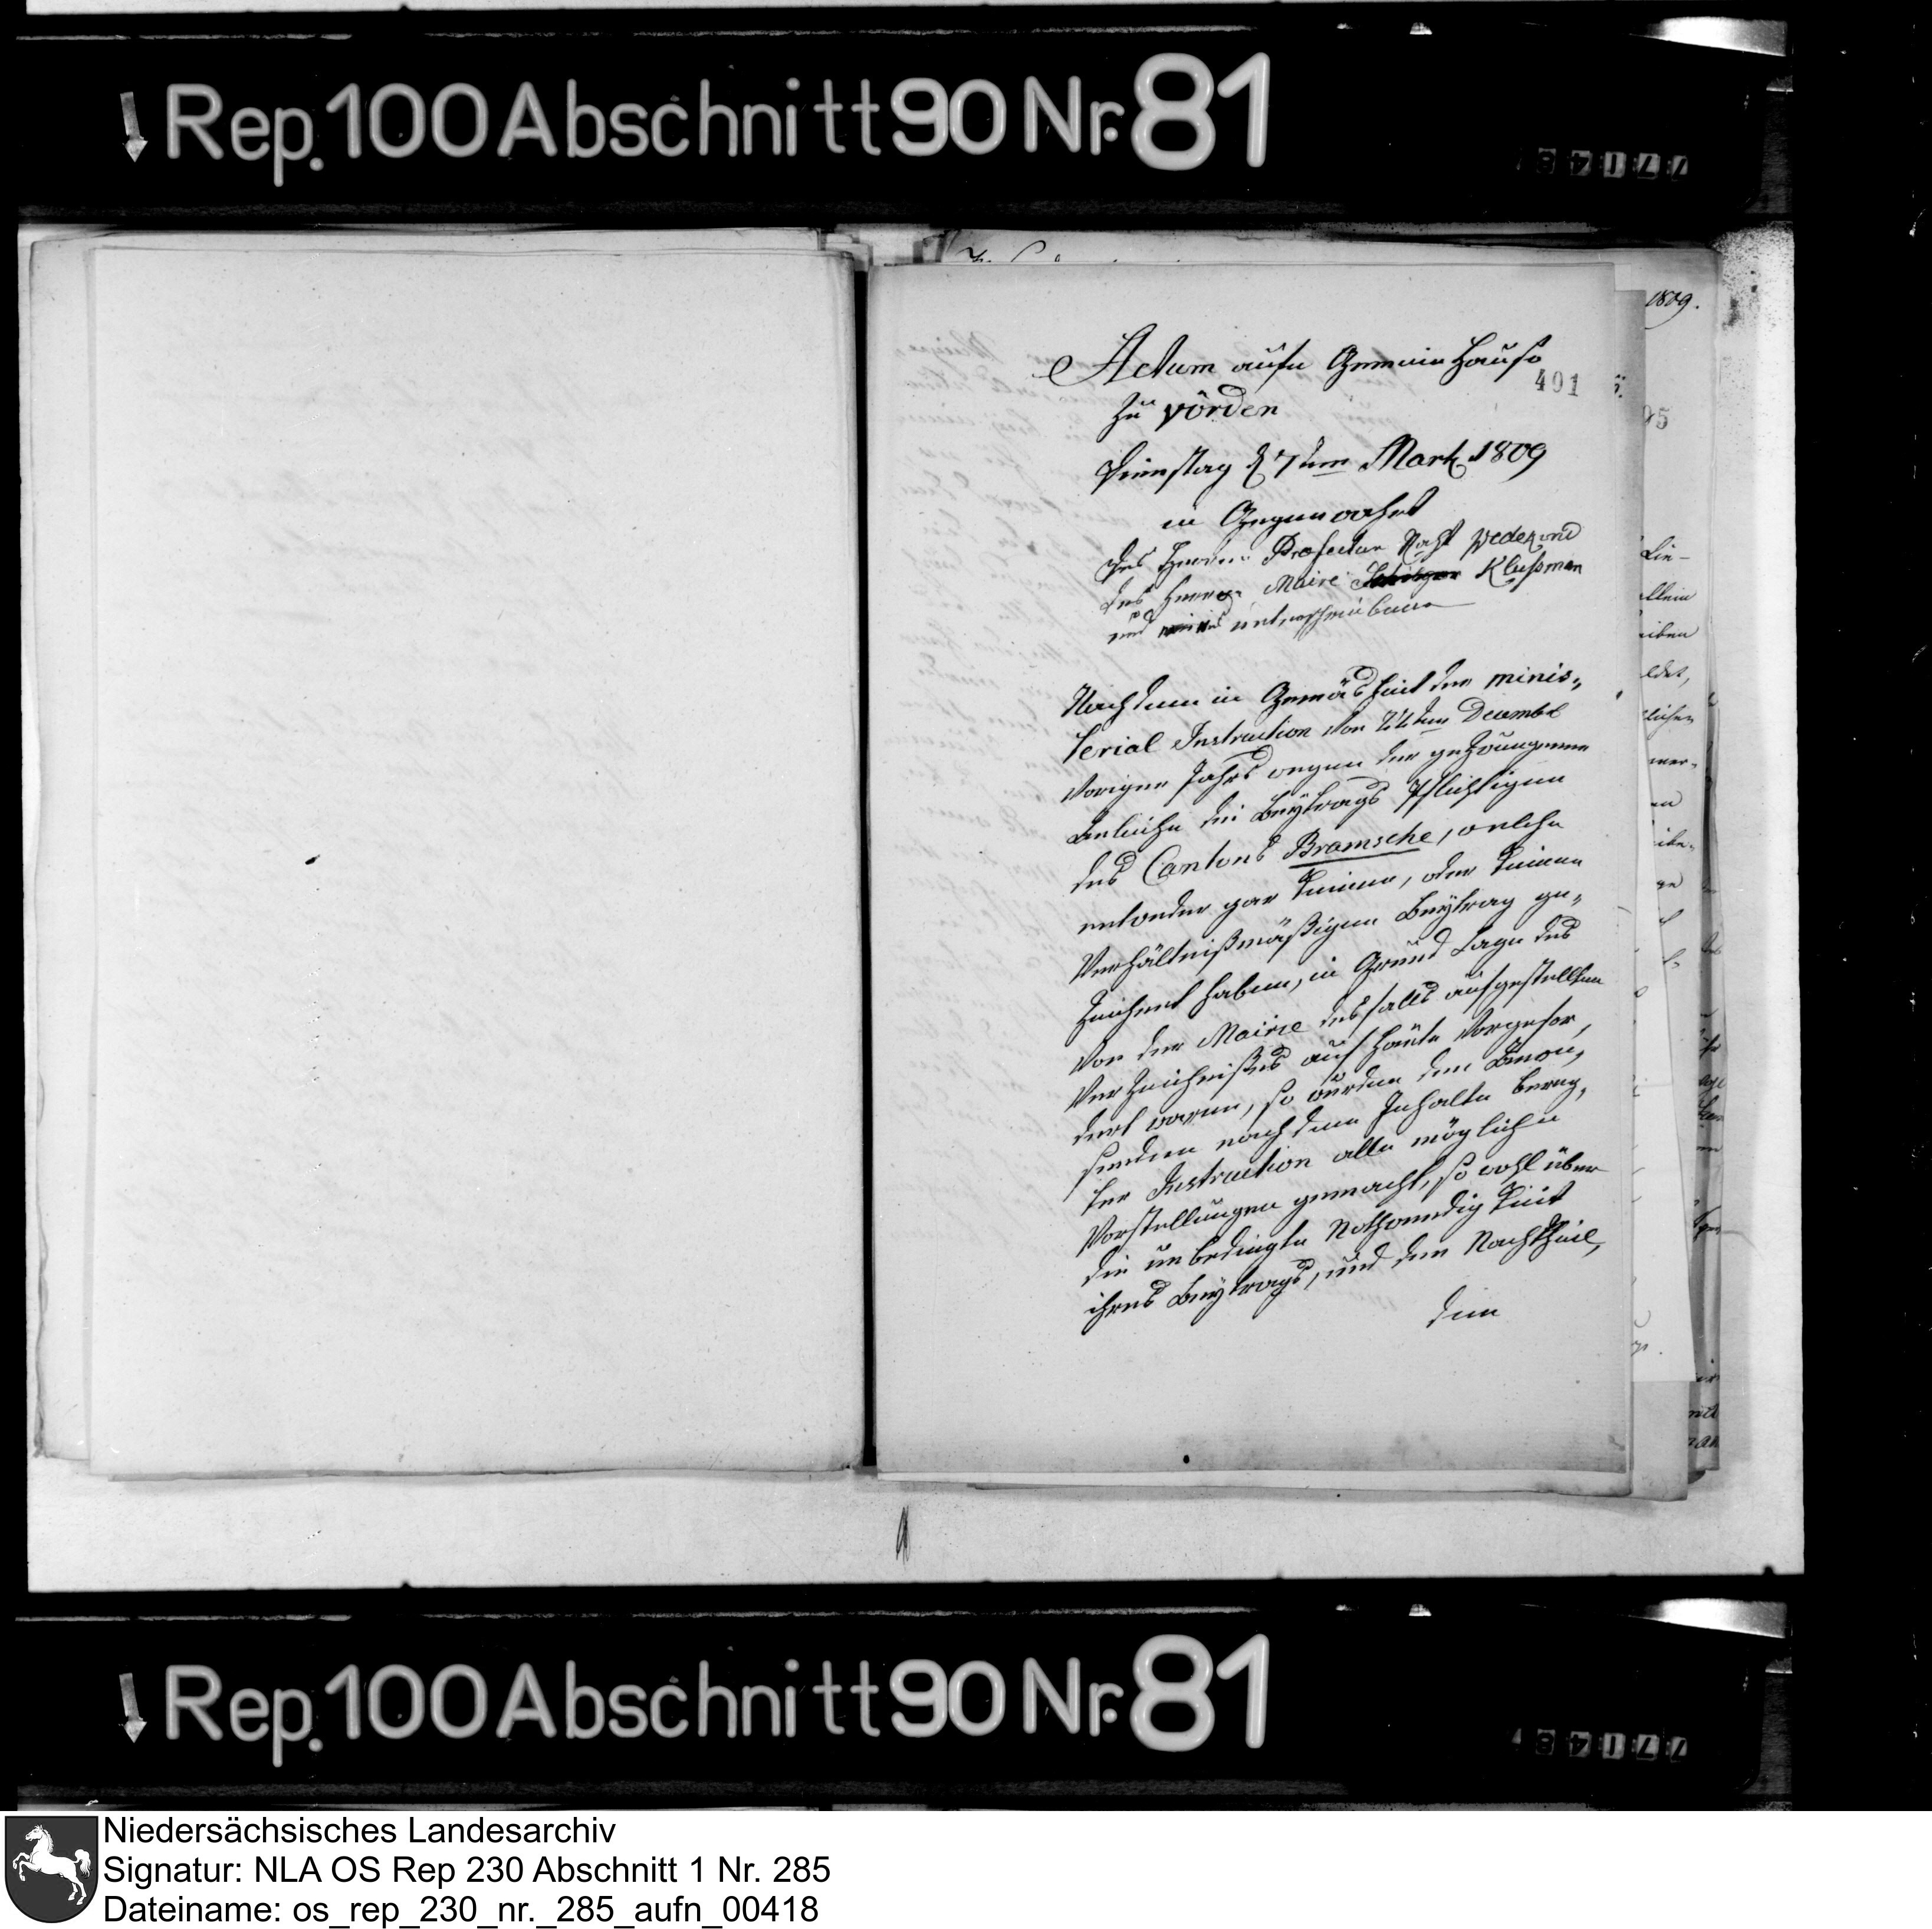 Rep. 100 Abschnitt 90 Nr. 81
1809.
Actum aufn Gemein Hause
401
zu Vörden
Dienstag d 7ten Martz 1809
in Gegenwahrt
des Herrn Prefectur Raht Wedekind
des Herrn Maire Klußman
und unterschriebenen
Nachdem in Gemäsheit der minis„
terial Instruction von December
vorigen Jahrs wegen der gezwungenen
Anleihe die Beytrags Pflichtigen
des Cantons Bramsche, welche
entweder gar keinen, oder keinen
Verhältnißmäßigen Beytrag ge„
zeichnet haben, in Grund Lage des
von der Mairie desfalls aufgestellten
Verzeichnißes auf heute vorgefor„
dert waren, so wurden den
nach dem Inhalte bereg„
ter Instruction alle mögliche
Vorstellungen gemacht, so wohl über
die unbedingte Nothwendigkeit
ihres Beytrags, und den Nachtheil,
dem
Rep. 100 Abschnitt 90 Nr. 81
Niedersächsisches Landesarchiv
Signatur: NLA OS Rep 230 Abschnitt 1 Nr. 285
Dateiname: os_rep_230_nr._285_aufn_00418